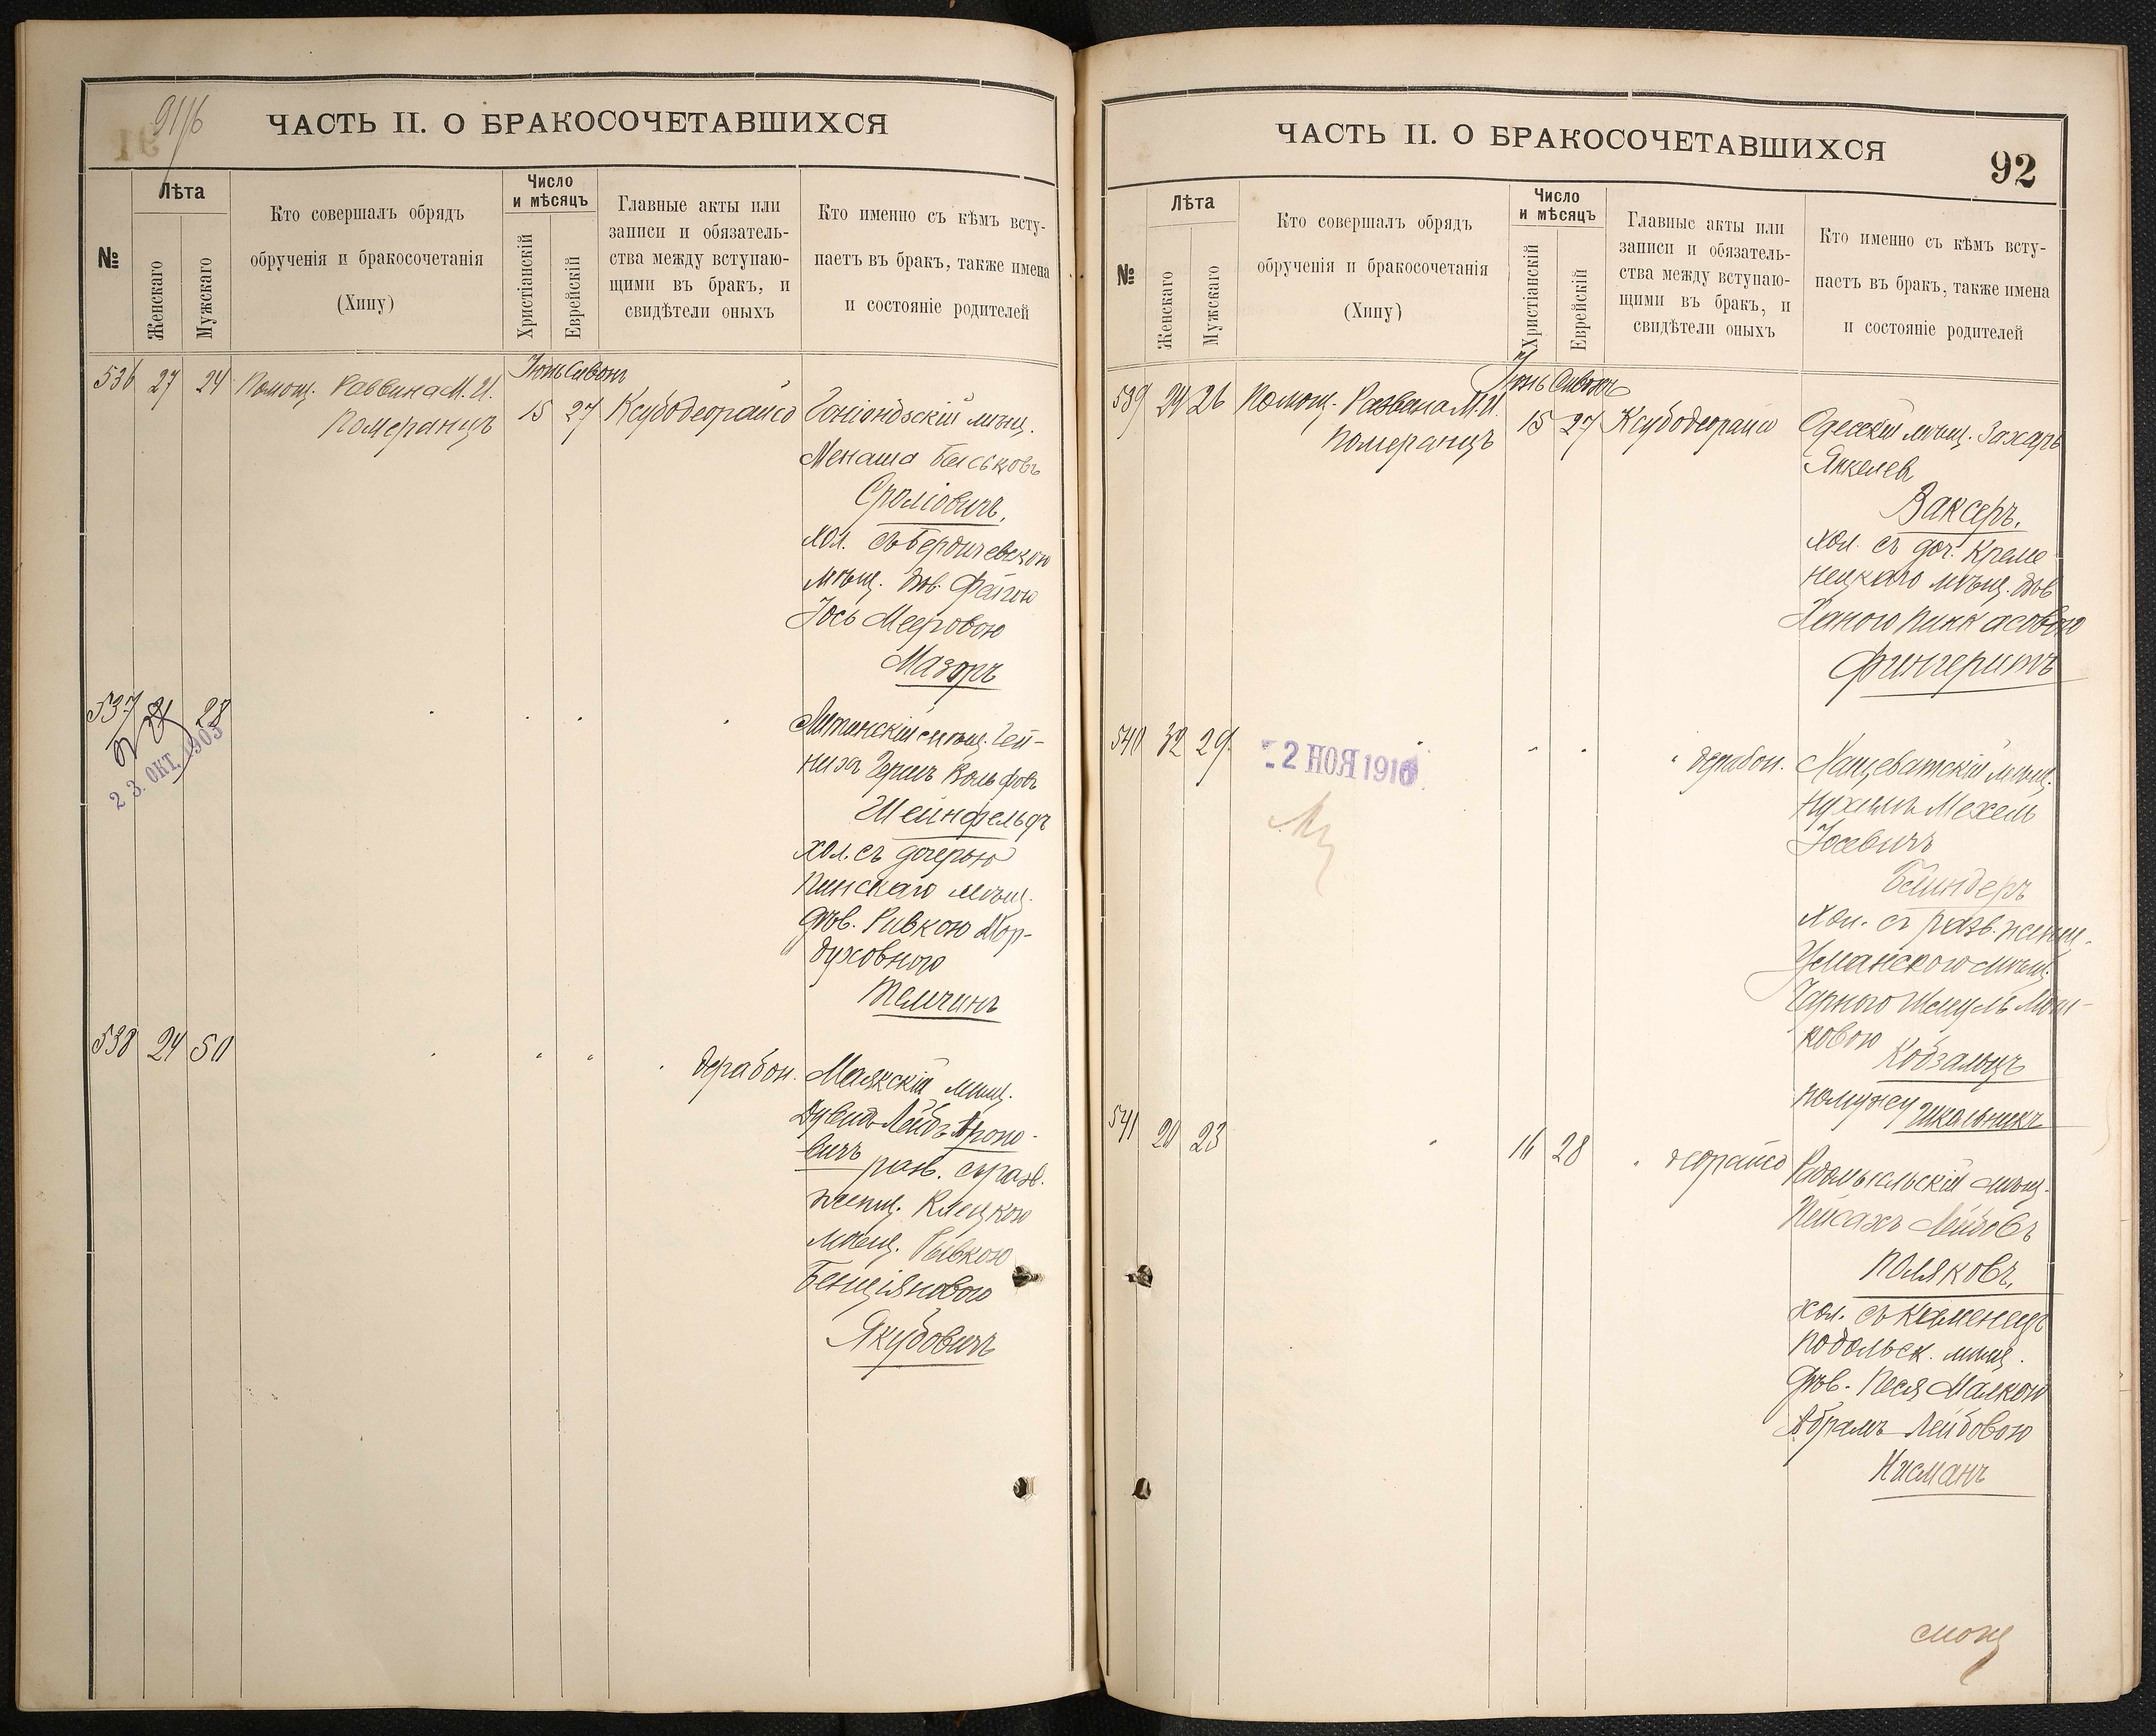 91/16
ЧАСТЬ II. О БРАКОСОЧЕТАВШИХСЯ
№
Лѣта
Женскаго
Мужскаго
Кто совершалъ обрядъ
обрученія и бракосочетанія
(Хипу)
Число
и мѣсяцъ
Христіанскій
Еврейскій
Главные акты или
записи и обязатель-
ства между вступаю-
щими въ бракъ, и
свидѣтели оныхъ
Кто именно съ кѣмъ всту-
паетъ въ бракъ, также имена
и состояніе родителей
536 27 24 Помощ. Раввина М. И.
Померанцъ
Іюнь Сивонъ
15 27 Ксубодеорайсо
Гоніондзскій мѣщ.
Менаша Беньковъ
Сроліовичъ,
хол. съ Бердичевскою
мѣщ. дѣв. Фейгою
Іось Мееровою
Мазоръ
537 21 28
23. ОКТ. 1903
Литинскій мѣщ. Гей-
нихъ Гершъ Вольфовъ
Шейнфельдъ
хол. съ дочерью
Пинскаго мѣщ.
дѣв. Ривкою Мор-
духовною
Темчинъ
538 24 50
дерабон. Маякскій мѣщ.
Дувидъ Лейбъ Ароно-
вичъ разв. съ разв.
женщ. Клецкою
мѣщ. Рывкою
Бенціяновою
Якубовичъ
ЧАСТЬ II. О БРАКОСОЧЕТАВШИХСЯ
92
№
Лѣта
Женскаго
Мужскаго
Кто совершалъ обрядъ
обрученія и бракосочетанія
(Хипу)
Число
и мѣсяцъ
Христіанскій
Еврейскій
Главные акты или
записи и обязатель-
ства между вступаю-
щими въ бракъ, и
свидѣтели оныхъ
Кто именно съ кѣмъ всту-
паетъ въ бракъ, также имена
и состояніе родителей
539 24 26 Помощ. Раввина М. И.
Померанцъ
Іюнь Сивонъ
15 27 Ксубодеорайсо
Одесскій мѣщ. Захаръ
Янкелев
Ваксеръ,
хол. съ доч. Креме
нецкаго мѣщ. дѣв
Ханою Пинкасовою
Фингеритъ
540 32 29
2 НОЯ 1916
дерабон. Хащеватскій мѣщ.
Нухимъ Мехель
Іосевичъ
Блиндеръ
хол. съ разв. женщ.
Уманскою мѣщ.
Чарною Шмуль Мош-
ковою Кобзалицъ
по мужу Школьникъ
541 20 23
16 28
деорайсо Радомысльскій мѣщ.
Пейсахъ Лейбовъ
Поляковъ,
хол. съ Каменецъ
Подольск. мѣщ.
дѣв. Песя Малкою
Абрамъ Лейбовою
Нисманъ